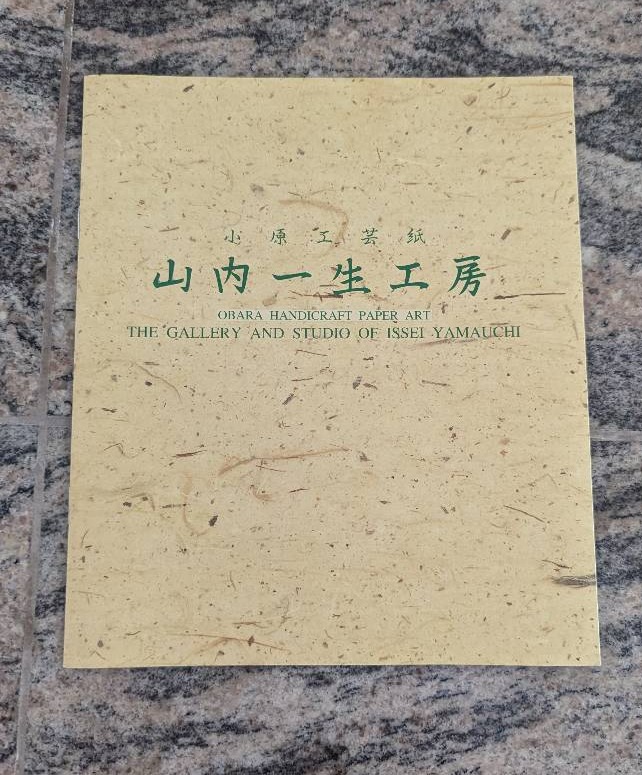 小原工芸紙
山内一生工房
OBARA HANDICRAFT PAPER ART
THE GALLERY AND STUDIO OF ISSEI YAMAUCHI